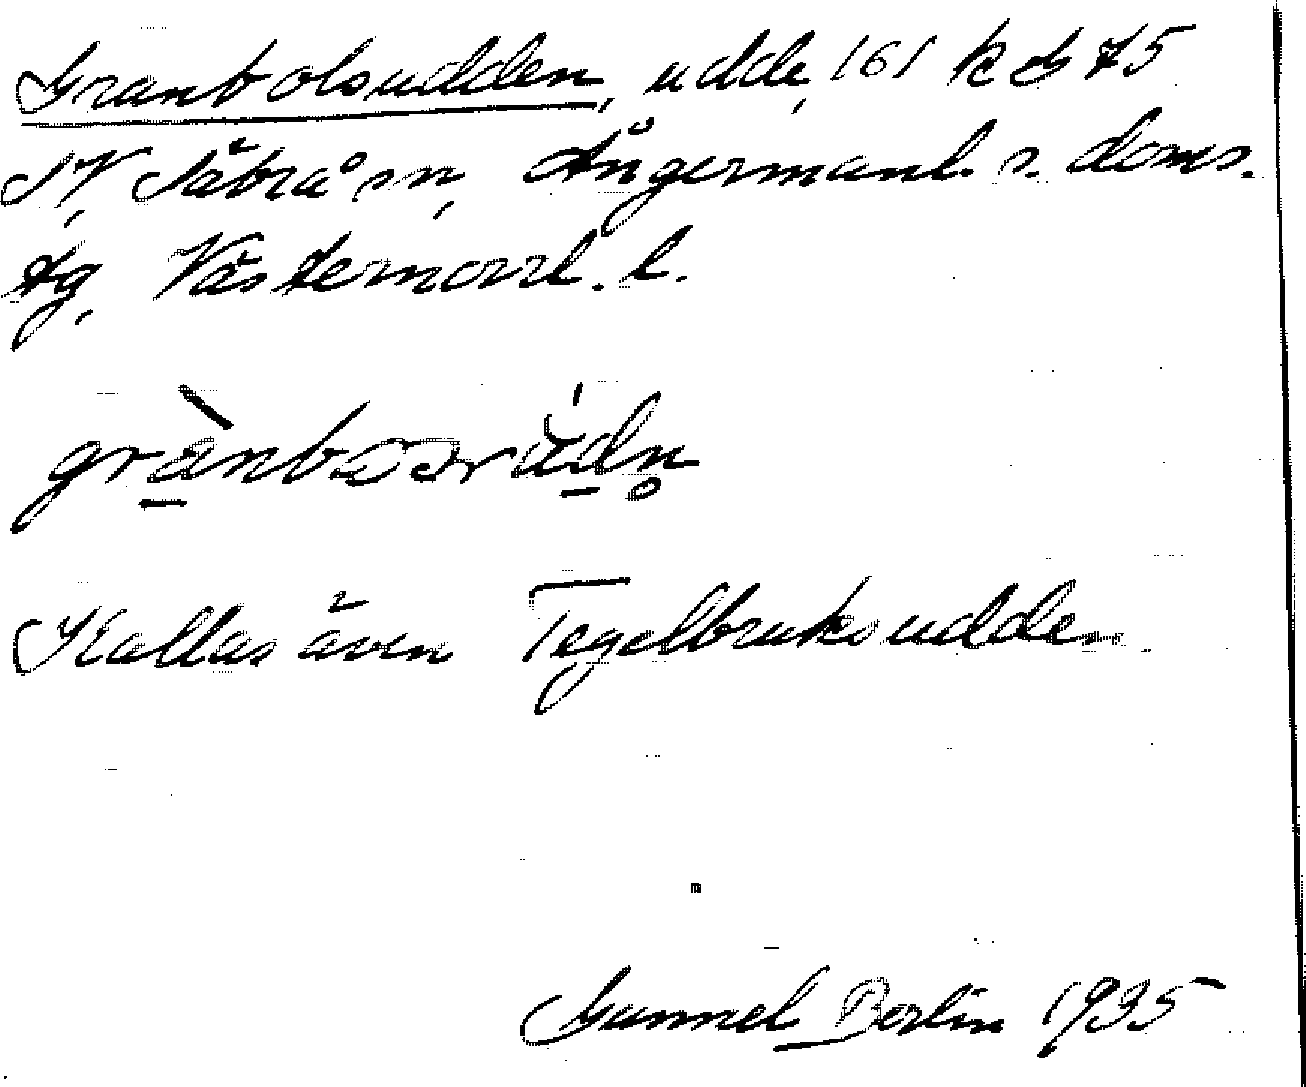 Granbolsudden, udde, 161 k G 75
NV, Säbrå sn, Ångermanl. s. doms.
tg, Västernorrl. l.
Kallas även Tegelbruksudden.
Gunnel Berlin 1935